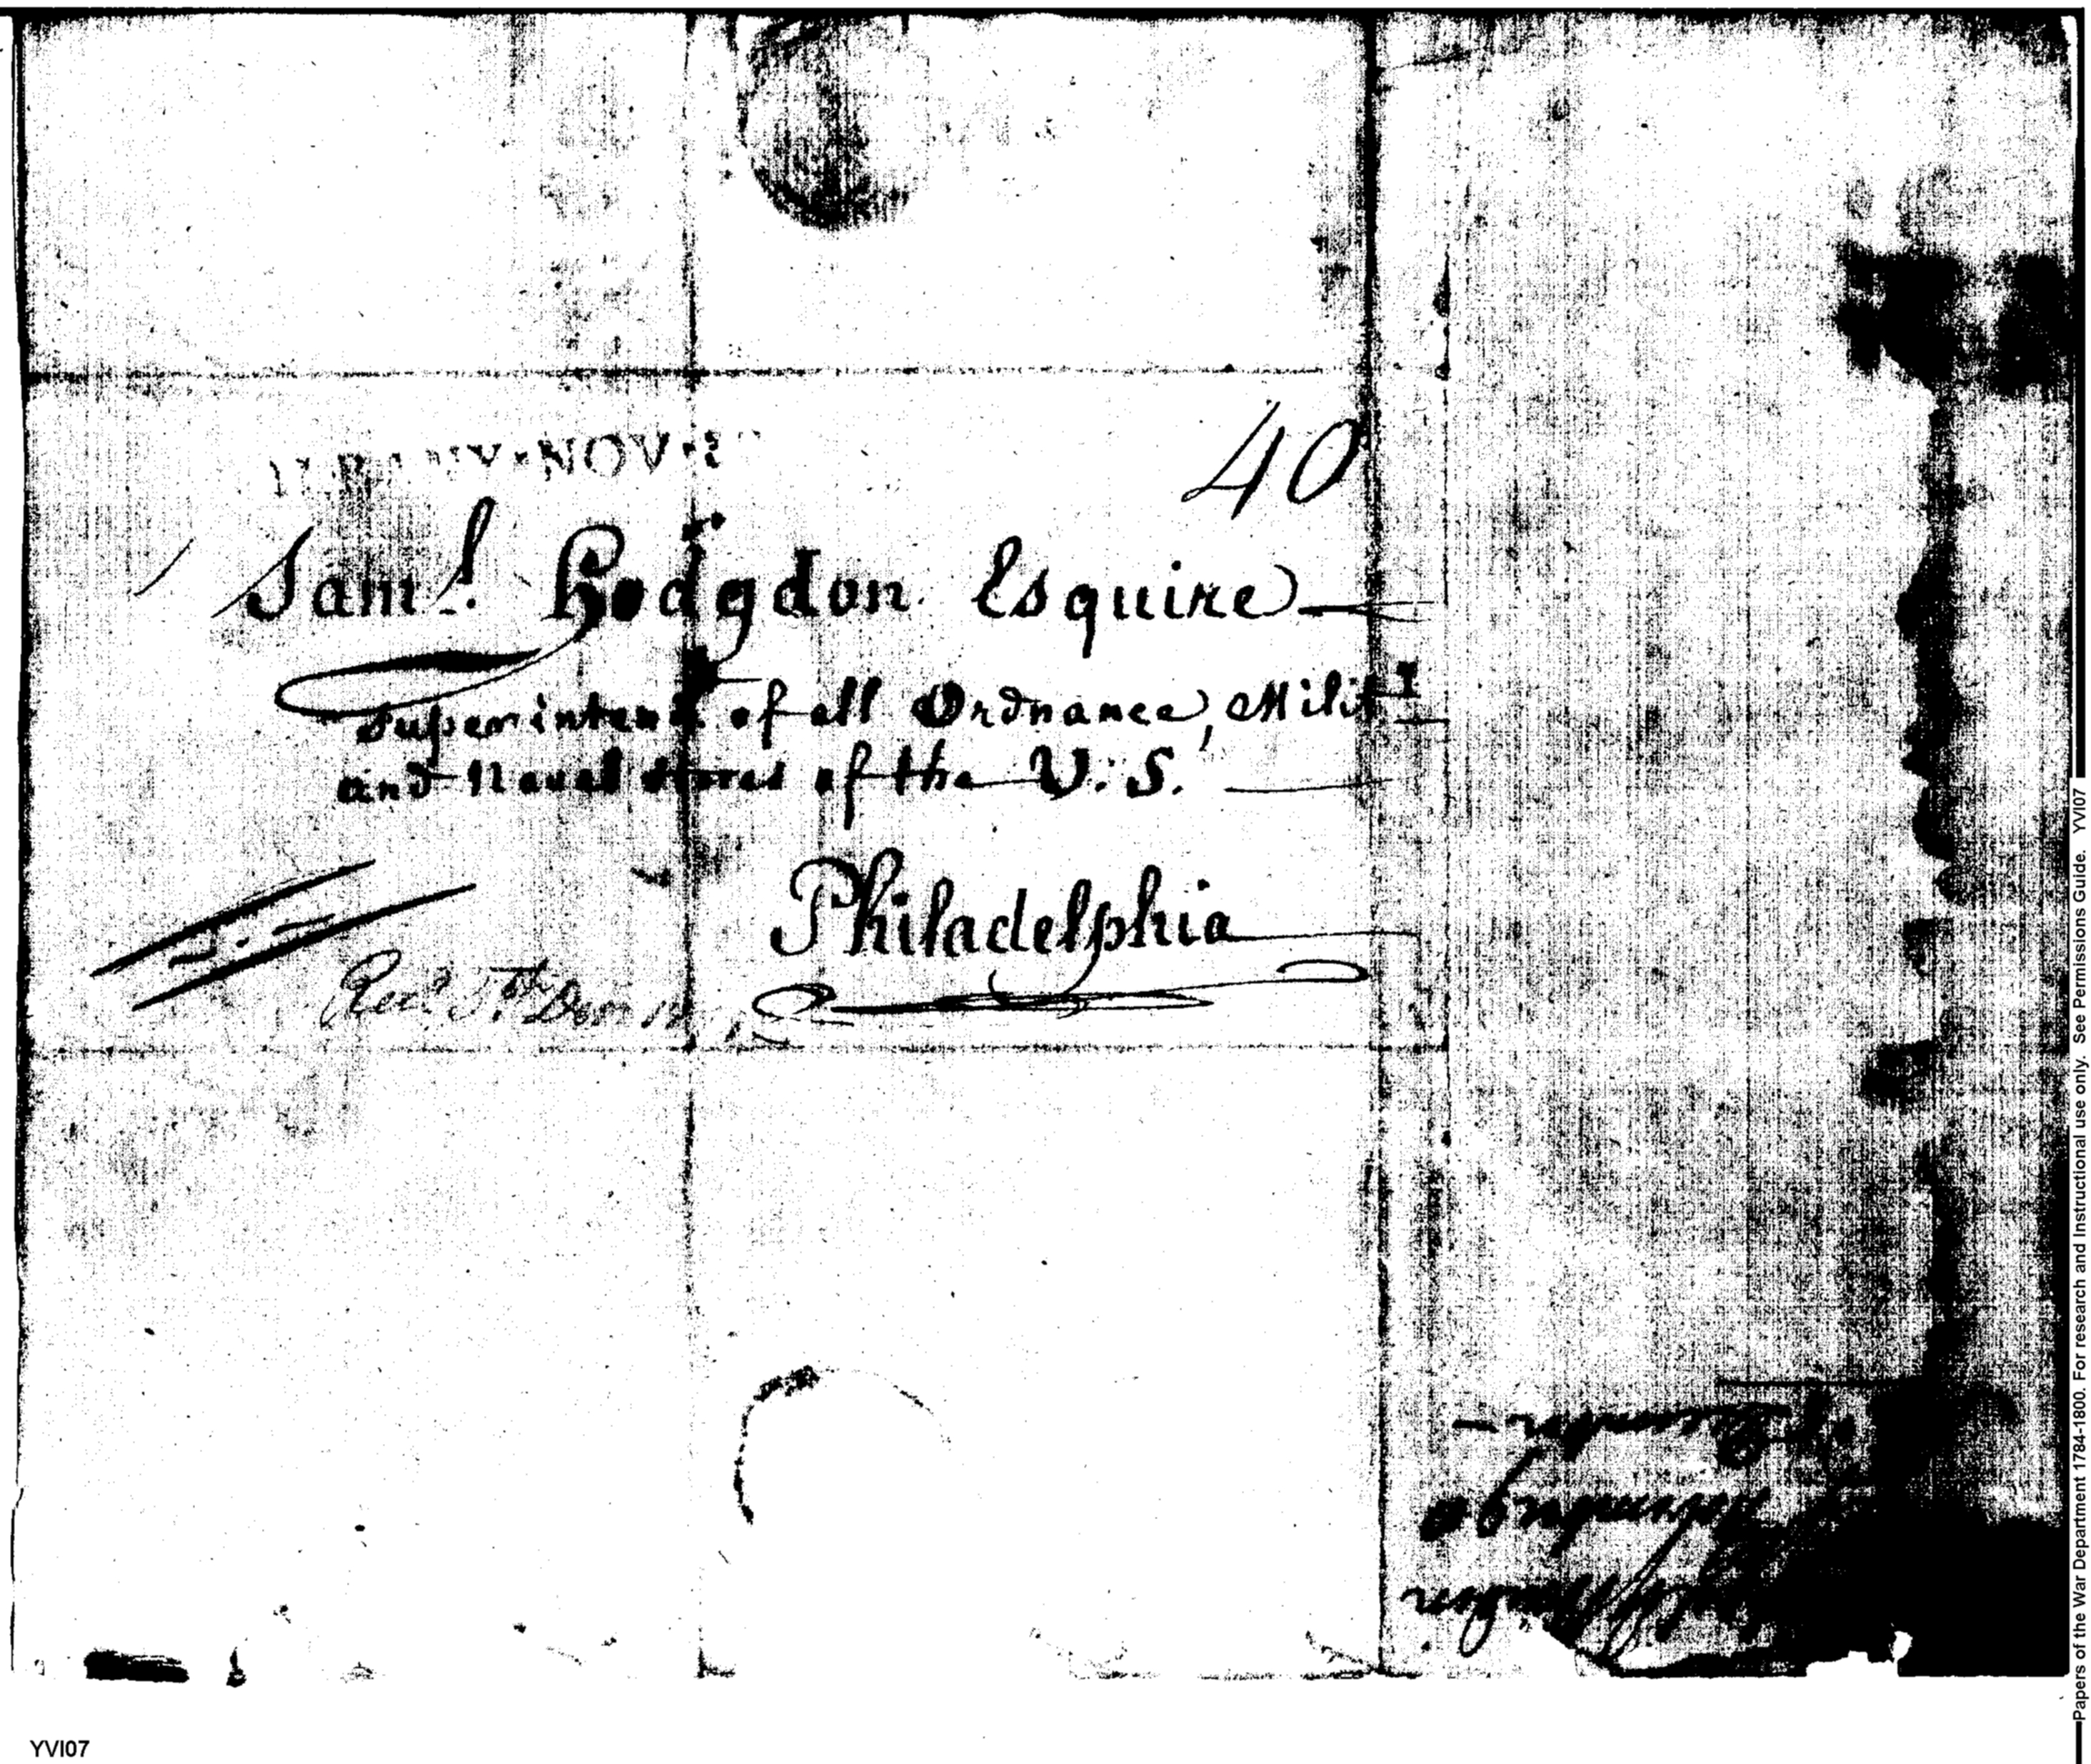 NOV
40
Saml. Hodgdon Esquire
Superintend. of all Ordnance, Mility
and Naval stores of the U. S.
Philadelphia
Recd. 5th Decr
of December
YVI07
Papers of the War Department 1784-1800. For research and Instructional use only. See Permissions Guide. YVI07